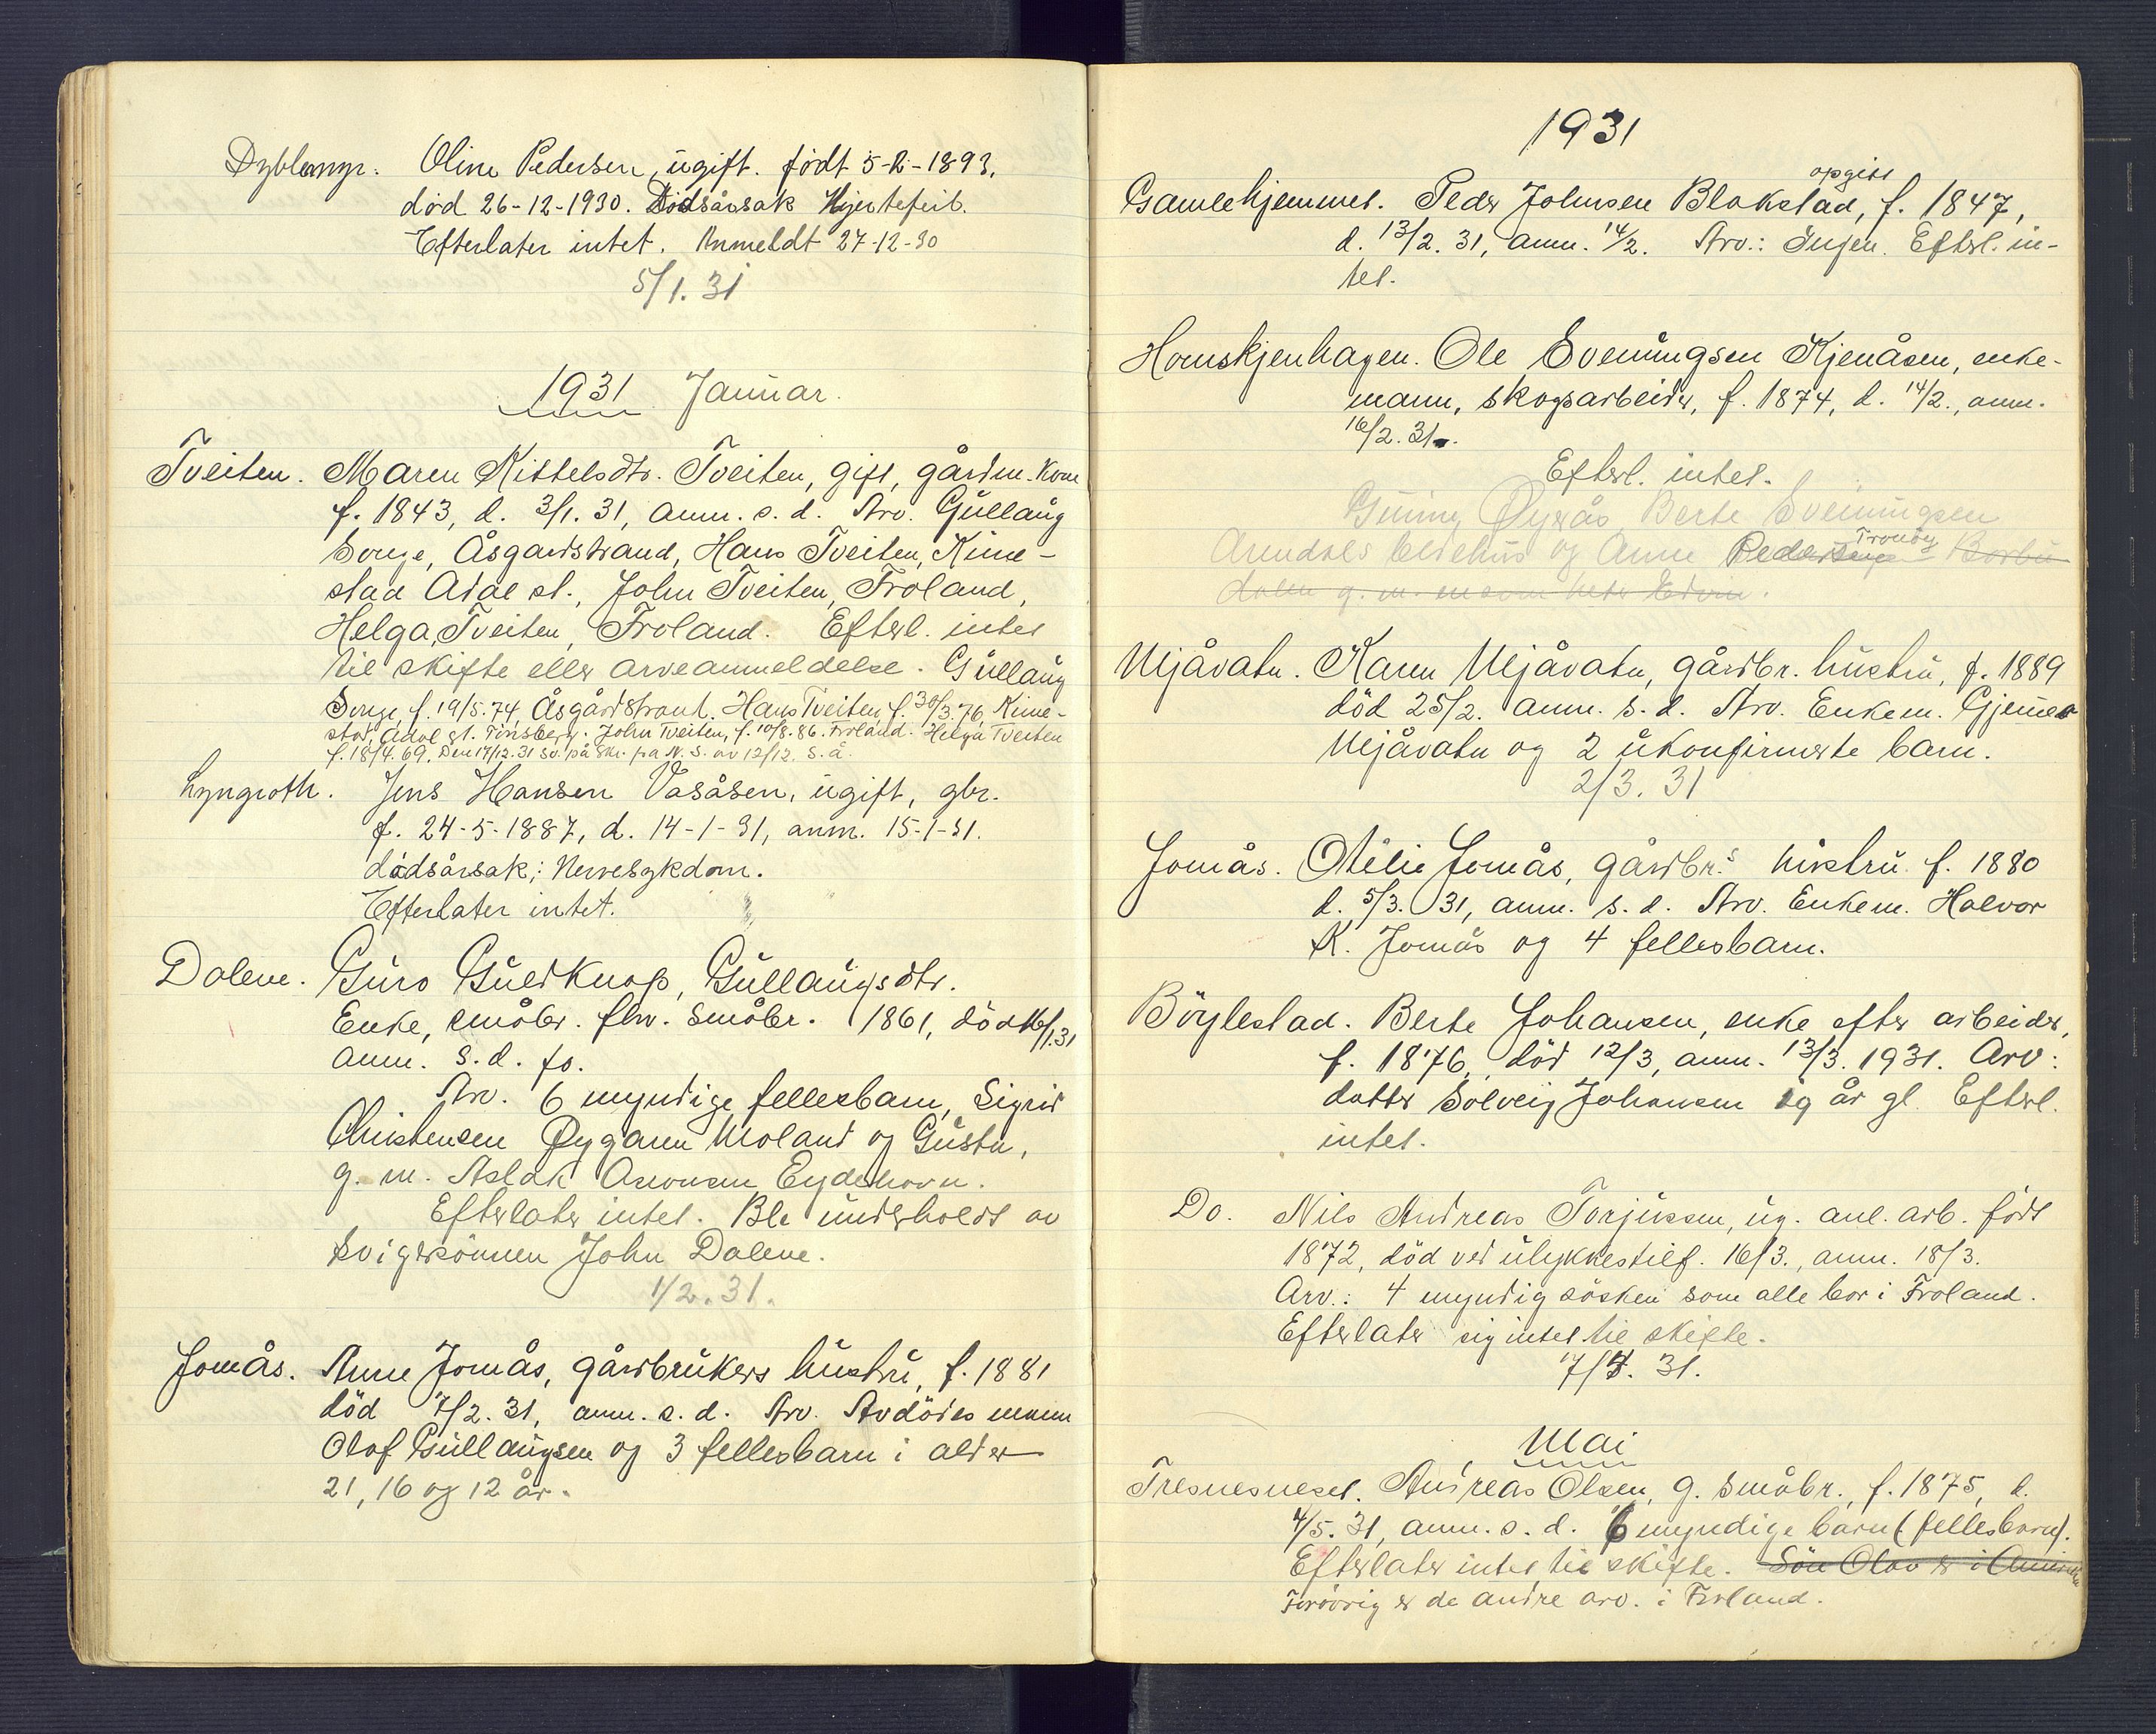 Dyblemyr. Oline Pedersen, ugift. født 5-2-1893.
död 26-12-1930. Dödsårsak Hjertefeil.
Efterlater intet. Anmeldt 27-12-30
5/1. 31
1931 Januar.
Tveiten. Maren Kittelsdtr. Tveiten, gift, gårdm. kone
f. 1843, d. 3/1. 31, anm. s. d. Arv. Gullaug
Sorge, Åsgardstrand, Hans Tveiten, Kime-
stad Adal st., John Tveiten, Froland,
Helga Tveiten, Froland. Efterl. intet
til skifte eller arveanmeldelse. Gullaug
Sorge, f. 19/5. 74, Åsgårdstrand. Hans Tveiten, f. 30/3. 76, Kime-
stad, Adal st. Tönsberg. John Tveiten, f. 10/8. 86. Froland. Helga Tveiten
f. 18/4. 69. Den 17/12. 31 sv. på skr. fra N. S. av 12/12. s. å.
Lyngroth. Jens Hansen Vasåsen, ugift, gbr.
f. 24-5-1887, d. 14-1-31, anm. 15-1-31.
dödsårsak; Nervesykdom.
Efterlater intet.
Dalene. Guro Guldknap, Gullaugsdtr.
Enke, småbr. fhv. småbr. 1861, död 16/1. 31
anm. s. d. fo.
Arv. 6 myndige fellesbarn, Sigrid
Christensen Øygarn Moland og Gusta,
g. m. Aslak Aslaksen Eydehavn.
Efterlater intet. Ble underholdt av
svigersönnen John Dalene.
1/2. 31.
Jomås. Anne Jomås, gårdbrukers hustru, f. 1881
död 7/2. 31, anm. s. d. Arv. Avdödes mann
Olaf Gullaugsen og 3 fellesbarn i alder
21, 16 og 12 år.
1931
opgitt
Gamlehjemmet. Peder Johnsen Blakstad, f. 1847,
d. 13/2. 31, anm. 14/2. Arv.: Ingen. Efterl. in-
tet.
Homskjenhagen. Ole Sveinungsen Kjenåsen, enke-
mann, skogsarbeider, f. 1874, d. 14/2., anm.
16/2. 31.
Efterl. intet.
Gunny Øyrås, Berte Sveinungsen
Arendals eldehus og Anne Pedersen Tromöy Barbu
dalen g. m. en som heter Edvin.
Mjåvatn. Karen Mjåvatn, gårdbr. hustru, f. 1889
död 25/2. anm. s. d. Arv. Enkem. Gjermer
Mjåvatn og 2 ukonfirmerte barn.
2/3. 31
Jomås. Otilie Jomås, gårdbr.s hustru f. 1880
d. 5/3. 31, anm. s. d. Arv. Enkem. Halvor
K. Jomås og 4 fellesbarn.
Böylestad. Berte Johansen, enke efter arbeider,
f. 1876, död 12/3, anm. 13/3. 1931. Arv:
datter Solveig Johansen 19 år gl. Efterl.
intet.
Do. Nils Andreas Torjussen, ug. anl. arb. födt
1872, död ved ulykkestilf. 16/3., anm. 18/3.
Arv.: 4 myndig sösken som alle bor i Froland.
Efterlater sig intet til skifte.
7/4. 31.
Mai
Tresnesneset. Andreas Olsen, g. småbr., f. 1875, d.
4/5. 31, anm. s. d. 6 myndige barn (fellesbarn).
Efterlater intet til skifte. Sön Olav er i Amerika
Forövrig er de andre arv. i Froland.